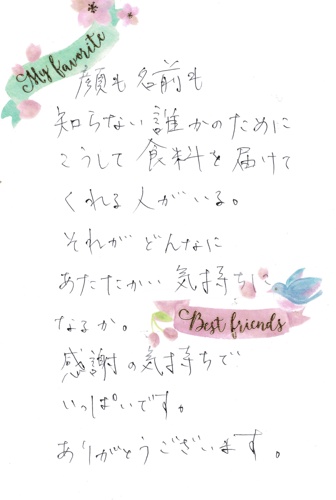 My favorite
顔も名前も
知らない誰かのために
こうして食料を届けて
くれる人がいる。
それがどんなに
あたたかい気持ちに
なるか。
Best friends
感謝の気持ちで
いっぱいです。
ありがとうございます。